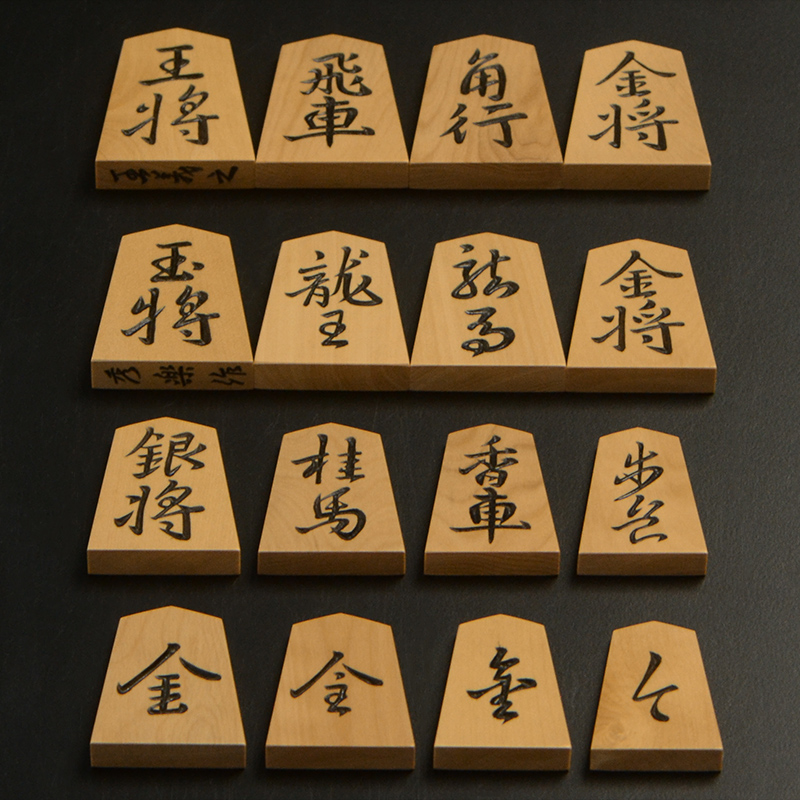 王将
飛車
角行
金将
玉将
秀樂作
龍王
龍馬
金将
銀将
桂馬
香車
歩兵
全
全
金
と